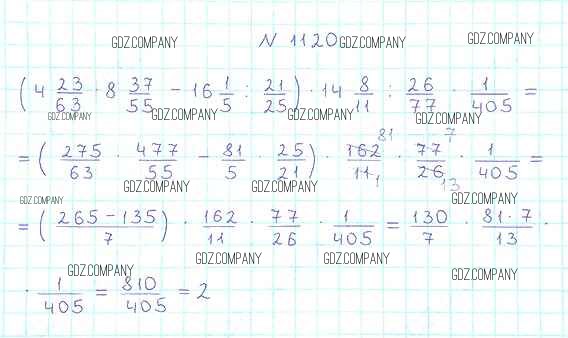 GDZ.COMPANY N 1120 GDZ.COMPANY GDZ.COMPANY
(4 23/63 · 8 37/55 − 16 1/5 : 21/25) · 14 8/11 : 26/77 · 1/405 =
GDZ.COMPANY GDZ.COMPANY GDZ.COMPANY GDZ.COMPANY
= (275/63 · 477/55 − 81/5 · 25/21) · 162 81/11 1 · 77 7/26 13 · 1/405 =
GDZ.COMPANY GDZ.COMPANY GDZ.COMPANY GDZ.COMPANY
= (265 − 135/7) · 162/11 · 77/26 · 1/405 = 130/7 · 81 · 7/13 ·
GDZ.COMPANY GDZ.COMPANY GDZ.COMPANY GDZ.COMPANY
· 1/405 = 810/405 = 2